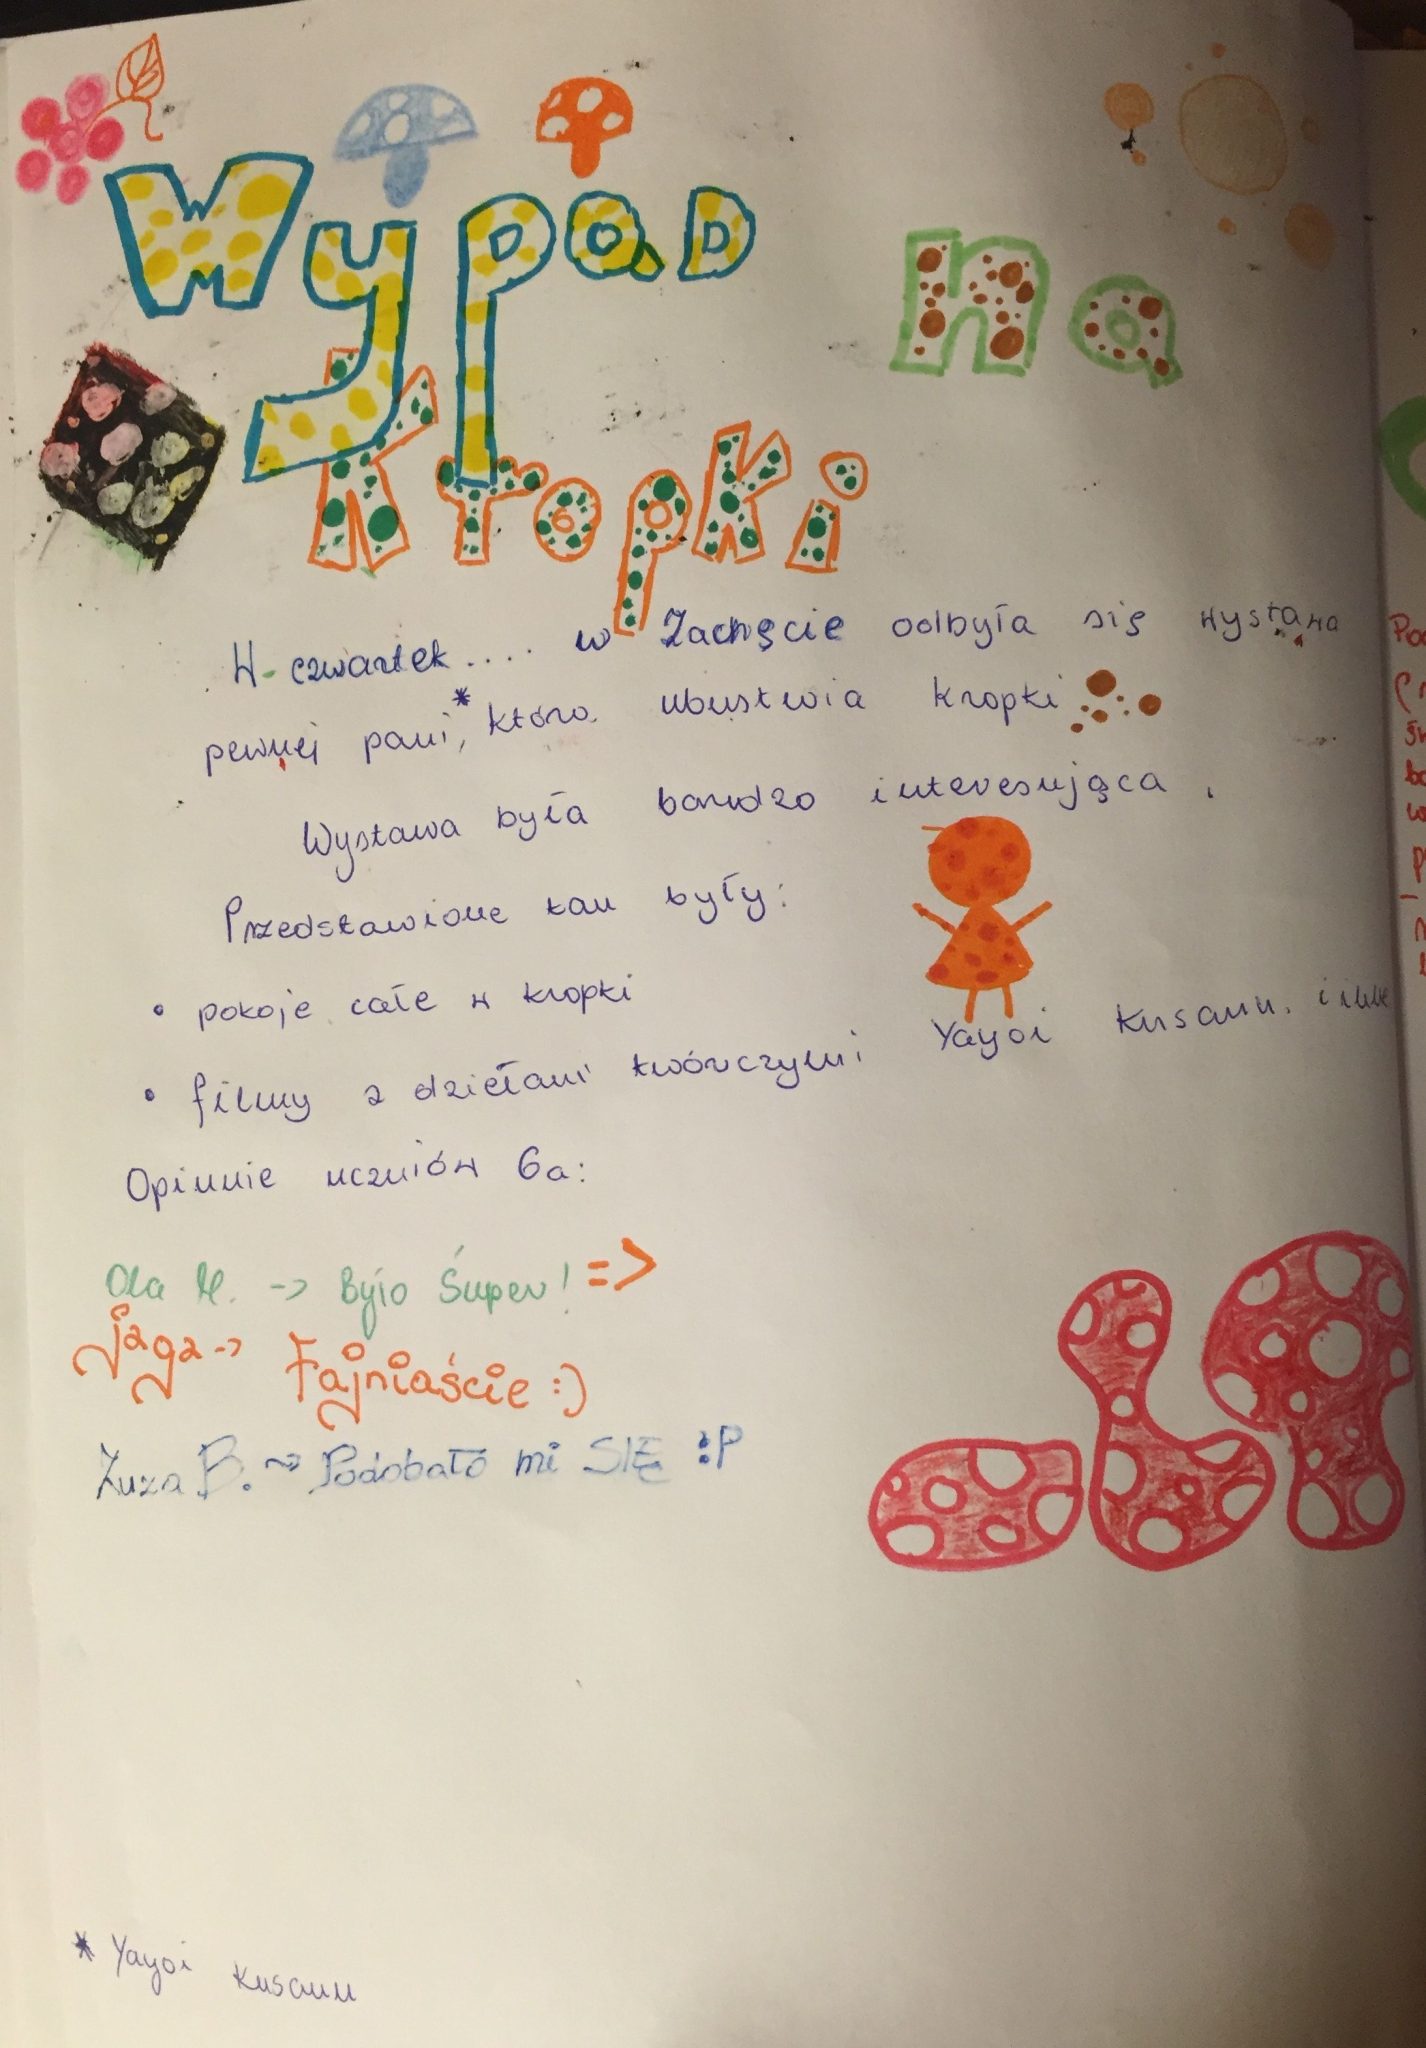 Wypad na
Kropki
W czwartek.... w Zachęcie odbyła się wystawa
pewnej pani,* która ubustwia kropki
Wystawa była bardzo interesująca.
Przedstawione tam były:
• pokoje całe w kropki
• filmy z dziełami twórczymi Yayoi Kusamu. i inne
Opinnie uczniów 6a:
Ola M. -> Było Super! =>
Jaga -> Fajniaście :)
Zuza B. ~> Podobało mi SIĘ :P
* Yayoi Kusamu